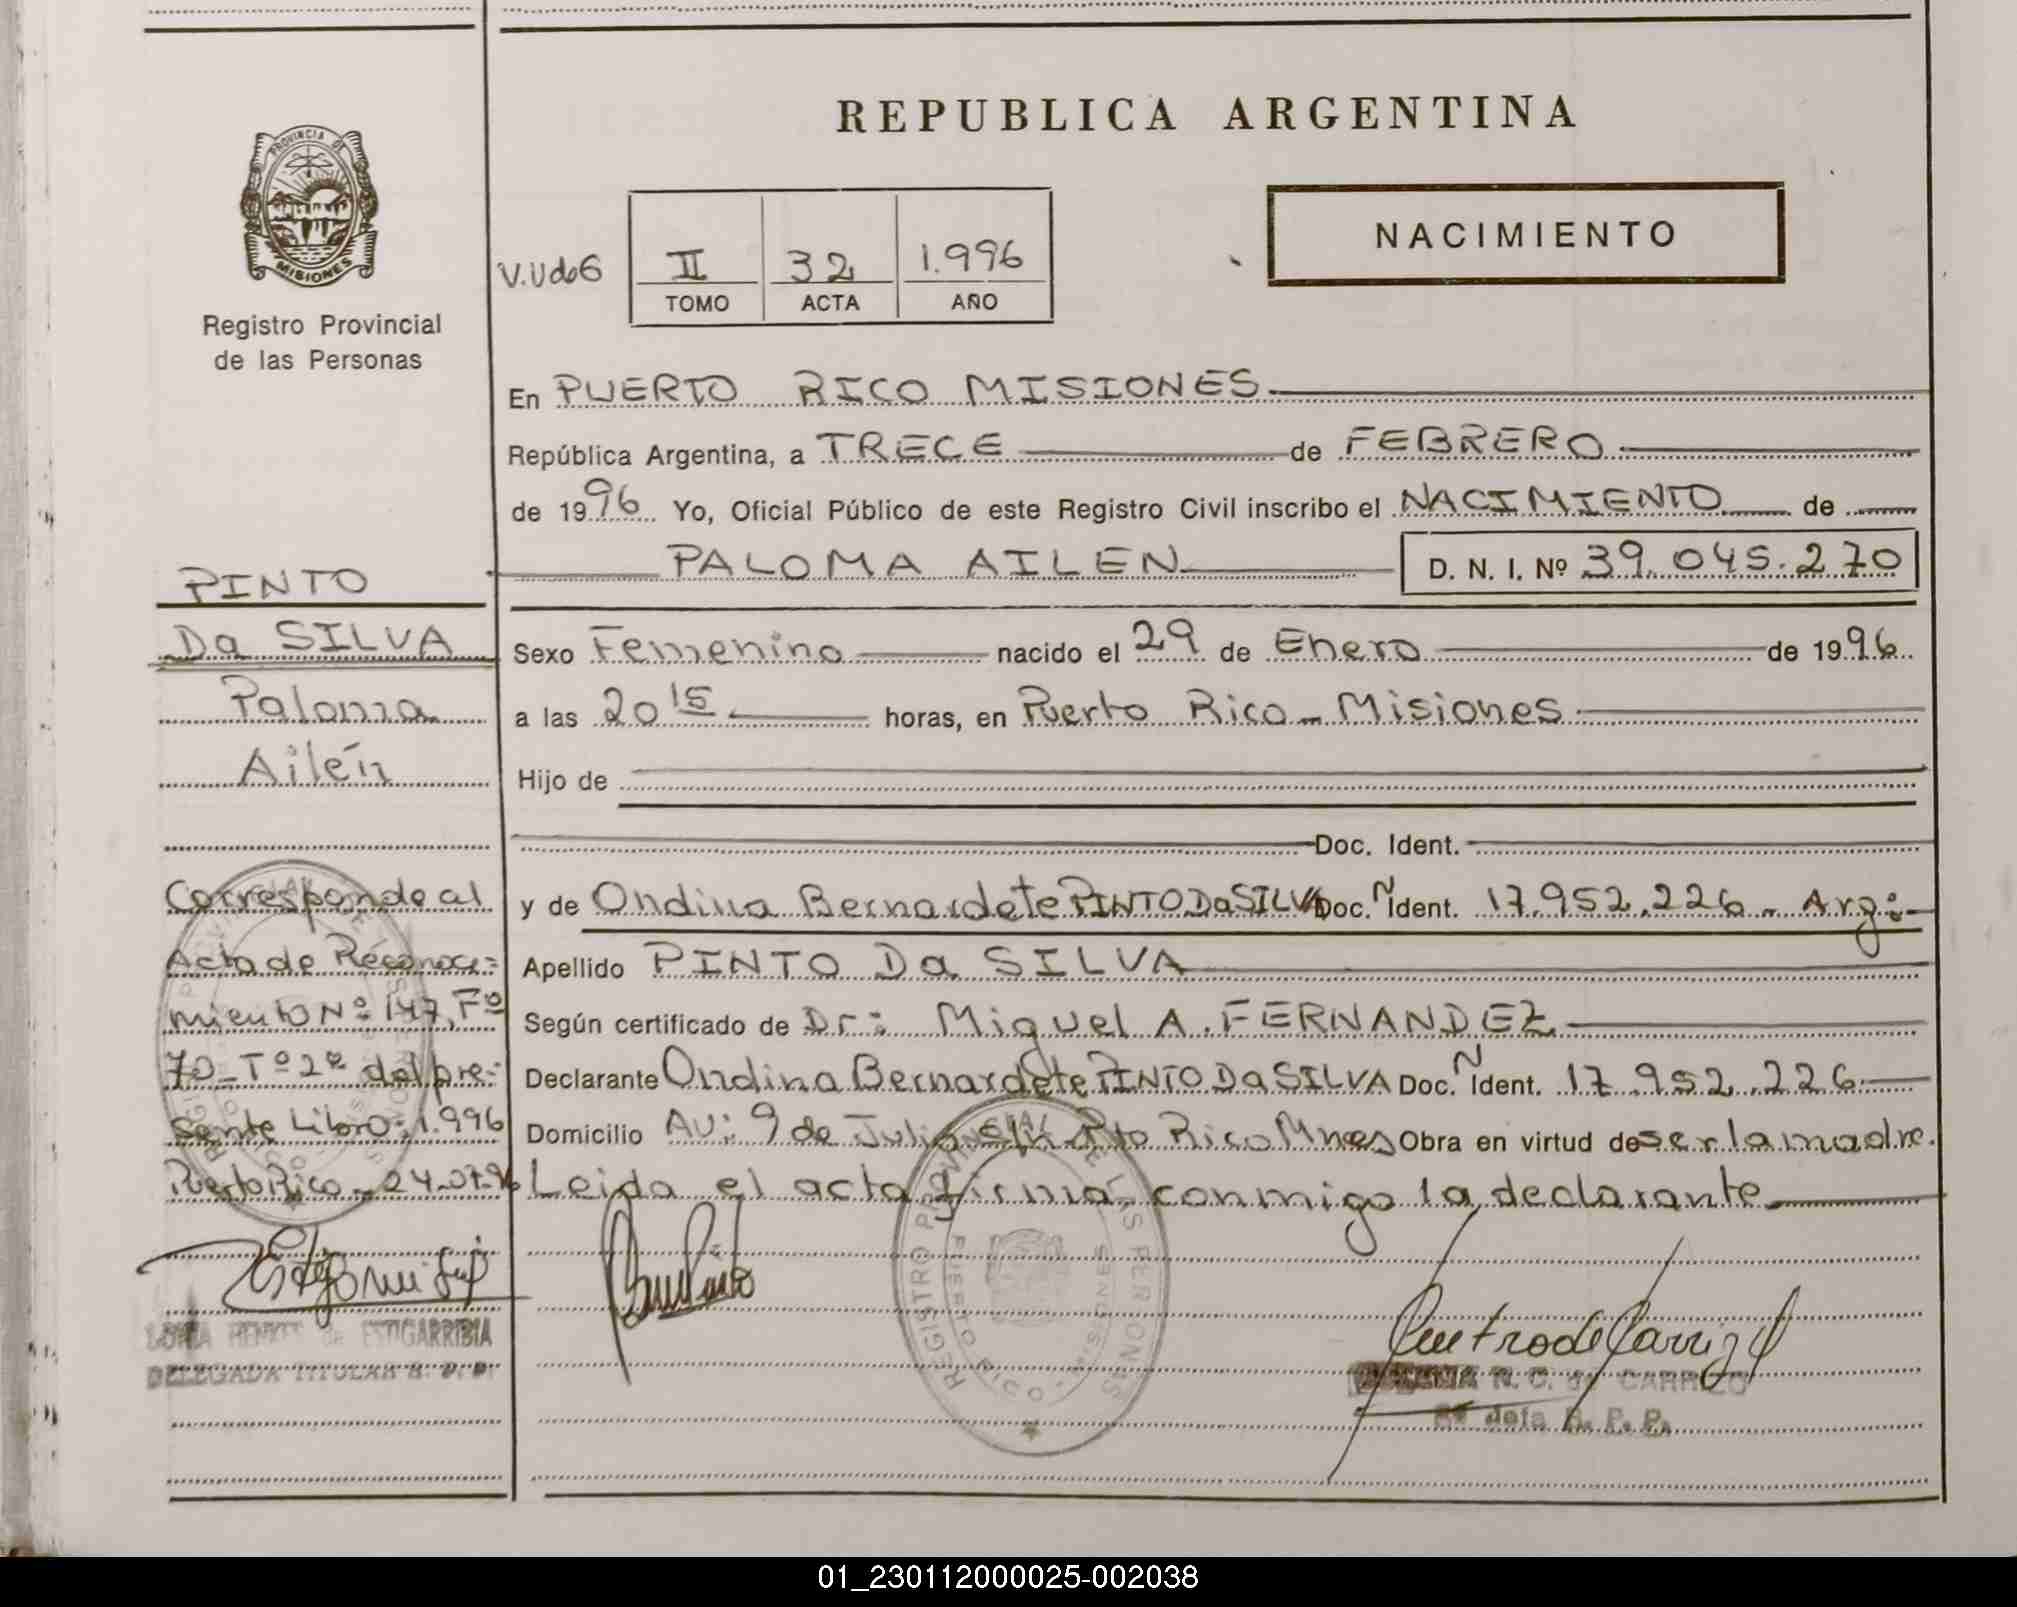 REPUBLICA ARGENTINA
NACIMIENTO
PROVINCIA DE
MISIONES
Registro Provincial
de las Personas
V.Udo6
II 32 1.996
TOMO ACTA AÑO
En PUERTO RICO MISIONES
República Argentina, a TRECE de FEBRERO
de 1996 Yo, Oficial Público de este Registro Civil inscribo el NACIMIENTO de
PALOMA AILEN D. N. I. Nº 39.045.270
Sexo Femenino nacido el 29 de Enero de 1996
a las 20 15 horas, en Puerto Rico - Misiones
Hijo de
Doc. Ident.
y de Ondina Bernardete PINTO Da SILVA Doc. Ident. 17.952.226 - Arg:
Apellido PINTO Da SILVA
Según certificado de Dr: Miguel A. FERNANDEZ
Declarante Ondina Bernardete PINTO Da SILVA Doc. Ident. 17.952.226
Domicilio AV: 9 de Julio S/n Pto Rico Mnes Obra en virtud de ser la madre.
Leida el acta firma conmigo la declarante
PINTO
Da SILVA
Paloma
Ailén
Corresponde al
Acta de Reconoci=
miento Nº 147, Fº
70 - Tº 2º del pre=
sente Libro: 1.996
Puerto Rico - 24-07-96
ESTIGARRIBIA
DELEGADA TITULAR R. P. P.
REGISTRO PROVINCIAL DE LAS PERSONAS
PUERTO RICO
MISIONES
R. C. de CARRIZO
Jefa R. P. P.
01_230112000025-002038